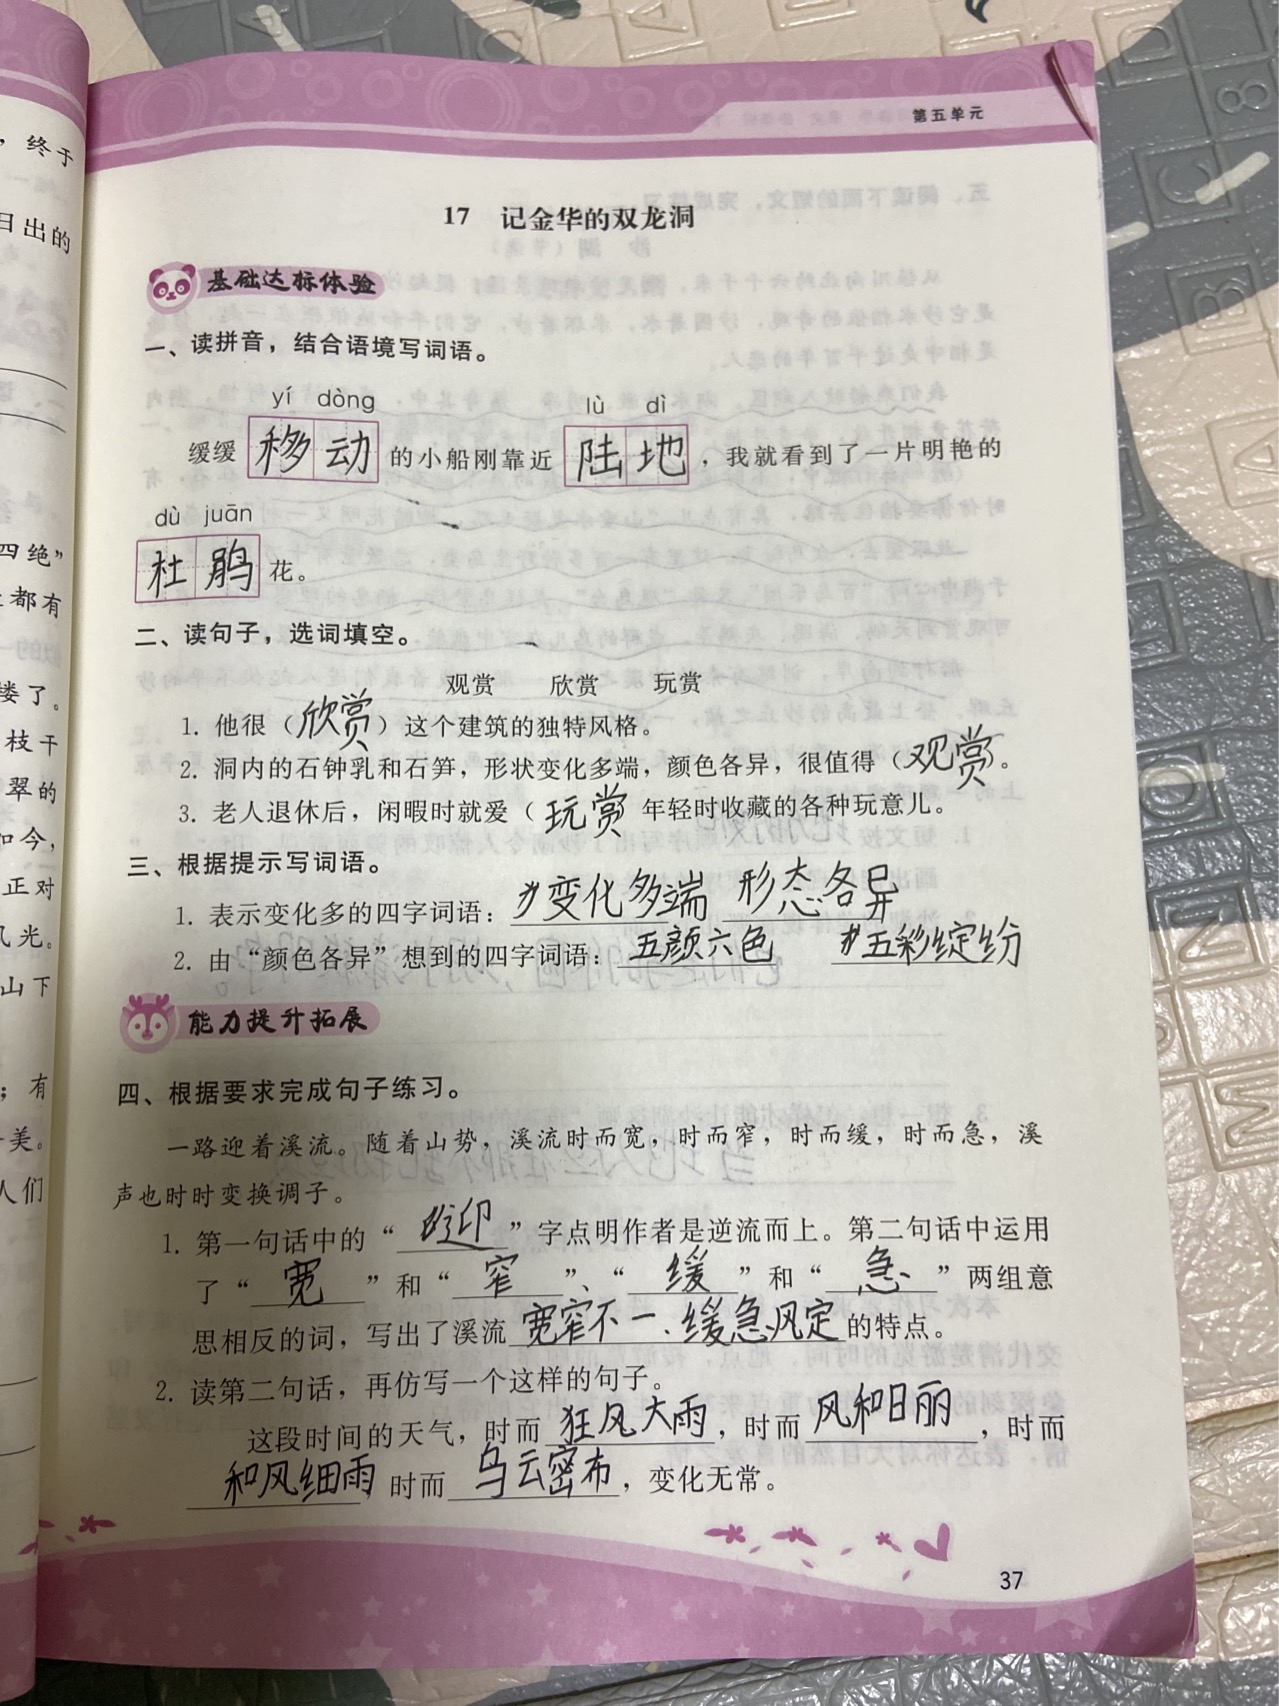 第五单元
，终于
日出的
四绝”
都有
楼了。
枝干
翠的
如今，
正对
风光。
山下
；有
美。
人们
17 记金华的双龙洞
基础达标体验
一、读拼音，结合语境写词语。
yí dòng lù dì
缓缓 移动 的小船刚靠近 陆地 ，我就看到了一片明艳的
dù juān
杜鹃 花。
二、读句子，选词填空。
观赏 欣赏 玩赏
1. 他很（欣赏）这个建筑的独特风格。
2. 洞内的石钟乳和石笋，形状变化多端，颜色各异，很值得（观赏。
3. 老人退休后，闲暇时就爱（玩赏 年轻时收藏的各种玩意儿。
三、根据提示写词语。
1. 表示变化多的四字词语：变化多端 形态各异
2. 由“颜色各异”想到的四字词语：五颜六色 五彩缤纷
能力提升拓展
四、根据要求完成句子练习。
一路迎着溪流。随着山势，溪流时而宽，时而窄，时而缓，时而急，溪
声也时时变换调子。
1. 第一句话中的“迎”字点明作者是逆流而上。第二句话中运用
了“宽”和“窄”、“缓”和“急”两组意
思相反的词，写出了溪流宽窄不一、缓急风定的特点。
2. 读第二句话，再仿写一个这样的句子。
这段时间的天气，时而狂风大雨，时而风和日丽，时而
和风细雨，时而乌云密布，变化无常。
37